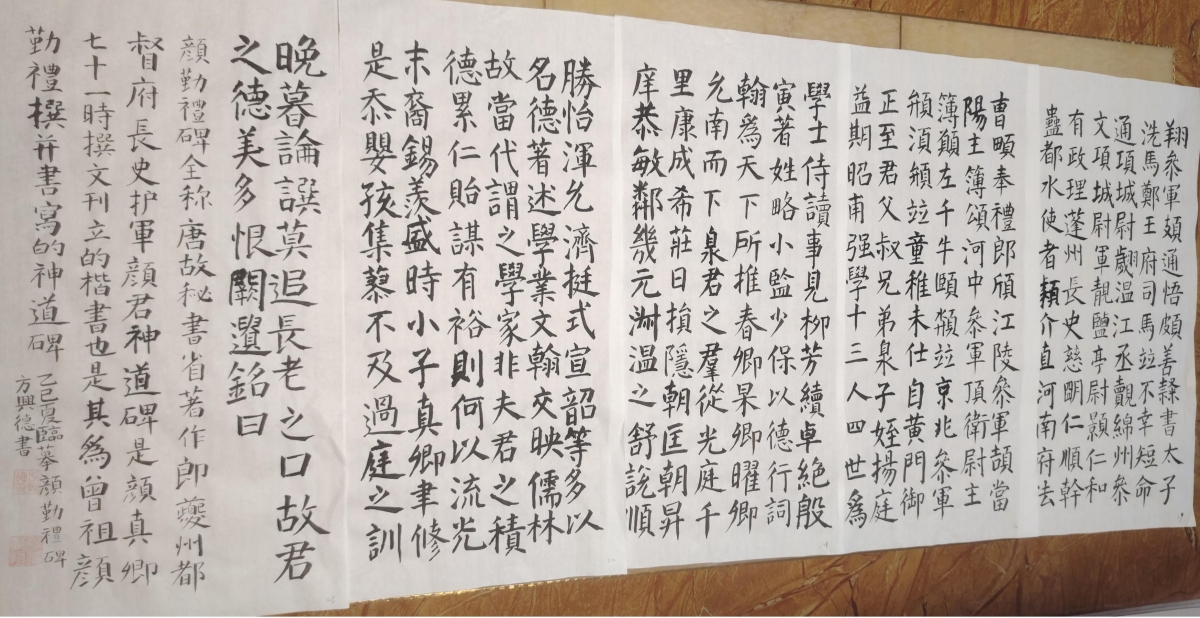 翔參軍頗通悟頗善隸書太子
洗馬鄭王府司馬竝不幸短命
通項城尉翽温江丞覿綿州叅
文項城尉軍靚鹽亭尉顥仁和
有政理蓬州長史慈明仁順幹
蠱都水使者頛介直河南府法
曹頔奉禮郎頎江陵叅軍頡當
陽主簿頌河中叅軍頂衛尉主
簿願左千牛頤頮竝京兆叅軍
頯湏頮竝童稚未仕自黃門御
正至君父叔兄弟息子姪揚庭
益期昭甫强學十三人四世爲
學士侍讀事見柳芳續卓絶殷
寅著姓略小監少保以德行詞
翰爲天下所推春卿杲卿曜卿
允南而下息君之羣從光庭千
里康成希莊日損隱朝匡朝昇
庠恭敏鄰幾元淑温之舒說順
勝怡渾允濟挺式宣韶等多以
名德著述學業文翰交映儒林
故當代謂之學家非夫君之積
德累仁貽謀有裕則何以流光
末裔錫羡盛時小子真卿聿修
是忝嬰孩集蓼不及過庭之訓
晚暮論譔莫追長老之口故君
之德美多恨闕遺銘曰
顔勤禮碑全称唐故秘書省著作郎夔州都
督府長史护軍顔君神道碑是顔真卿
七十一時撰文刊立的楷書也是其為曾祖顔
勤禮撰并書寫的神道碑
乙巳夏臨摹顔勤禮碑
方興德書